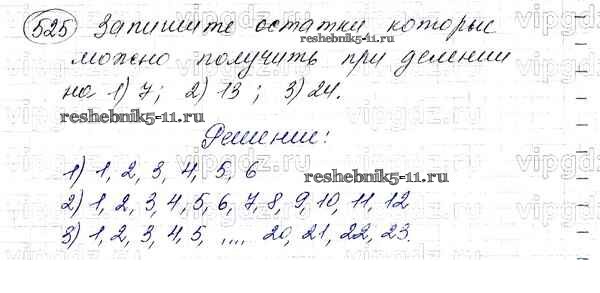 525 Запишите остатки которые
можно получить при делении
на 1) 7; 2) 13; 3) 24.
reshebnik5-11.ru
reshebnik5-11.ru
Решение:
reshebnik5-11.ru
1) 1, 2, 3, 4, 5, 6
2) 1, 2, 3, 4, 5, 6, 7, 8, 9, 10, 11, 12
3) 1, 2, 3, 4, 5, .... 20, 21, 22, 23.